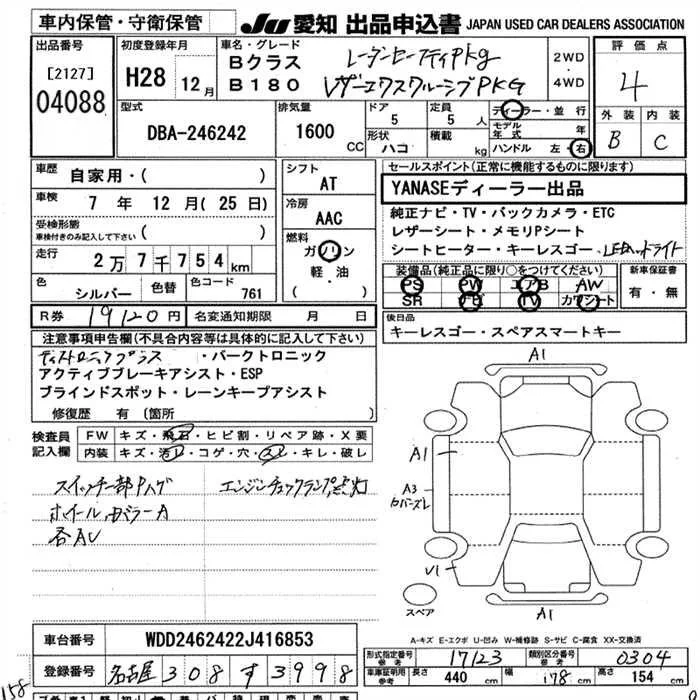 車内保管・守衛保管
JU 愛知 出品申込書 JAPAN USED CAR DEALERS ASSOCIATION
出品番号
[2127]
04088
初度登録年月
H28 12月
車名・グレード
Bクラス レーダーセーフティPkg
B180 レザーエクスクルーシブPKG
2WD
4WD
評価点
4
外装 内装
B C
型式
DBA-246242
排気量
1600 CC
ドア
5
定員
5 人
形状
ハコ
積載
kg
ディーラー・並行
モデル年式 年
ハンドル 左・右
車歴
自家用・( )
車検
7 年 12 月( 25 日)
受検形態
車検付きのみ記入して下さい ( )
走行
2 万 7 千 7 5 4 km
色
シルバー
色替
色コード
761
シフト
AT
冷房
AAC
燃料
ガソリン
軽・油
( )
セールスポイント(正常に機能するものに限ります)
YANASEディーラー出品
純正ナビ・TV・バックカメラ・ETC
レザーシート・メモリPシート
シートヒーター・キーレスゴー・LEDヘッドライト
装備品(純正品に限り○をつけてください)
PS PW エアB AW
SR ナビ TV カワシート
新車保証書
有・無
R券 19120 円 名変通知期限 月 日
後日品
キーレスゴー・スペアスマートキー
注意事項申告欄(不具合内容等は具体的に記入して下さい)
ディストロニックプラス・パークトロニック
アクティブブレーキアシスト・ESP
ブラインドスポット・レーンキープアシスト
修復歴 有(箇所 )
検査員記入欄
FW キズ・飛石・ヒビ割・リペア跡・X要
内装 キズ・汚レ・コゲ・穴・スレ・キレ・破レ
スイッチ部Pハゲ エンジンチェックランプ点灯
ホイール、カバラーA
各AU
A1
A1
A3
カバーズレ
V1
A1
スペア
A-キズ E-エクボ U-凹み W-補修跡 S-サビ C-腐食 XX-交換済
車台番号 WDD2462422J416853
登録番号 名古屋 308 す 3998
形式指定番号 参考 17123 類別区分番号 参考 0304
車庫証明用 参考 長さ 440 幅 178 高さ 154
158